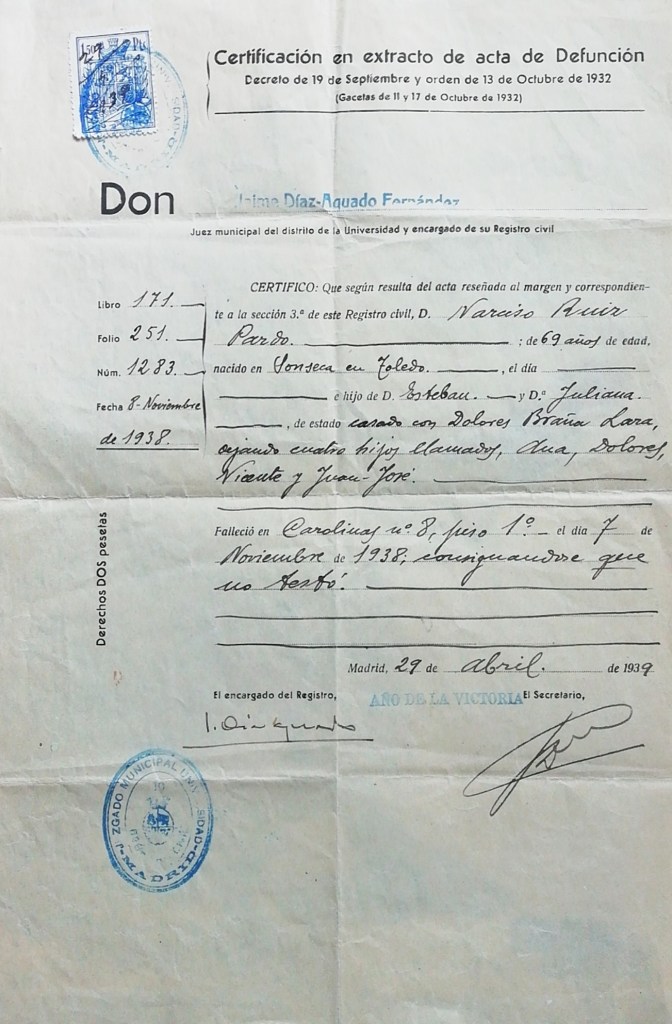 Certificación en extracto de acta de Defunción
Decreto de 19 de Septiembre y orden de 13 de Octubre de 1932
(Gacetas de 11 y 17 de Octubre de 1932)
Don Jaime Díaz-Aguado Fernández
Juez municipal del distrito de la Universidad y encargado de su Registro civil
Libro 171.
Folio 251.
Núm. 1283.
Fecha 8-Noviembre
de 1938.
Derechos DOS pesetas
CERTIFICO: Que según resulta del acta reseñada al margen y correspondien-
te a la sección 3.ª de este Registro civil, D. Narciso Ruiz
Pardo. ; de 69 años de edad,
nacido en Sonseca en Toledo. , el día
e hijo de D. Esteban. y D.ª Juliana.
, de estado casado con Dolores Braña Lara,
dejando cuatro hijos llamados, Ana, Dolores,
Vicente y Juan-José.
Falleció en Carolinas nº 8, piso 1º. el día 7
Noviembre de 1938, consignandose que
no testó.
Madrid, 29 de abril. de 1939
El encargado del Registro, AÑO DE LA VICTORIA El Secretario,
J. Díaz Aguado
JUZGADO MUNICIPAL UNIVERSIDAD
MADRID